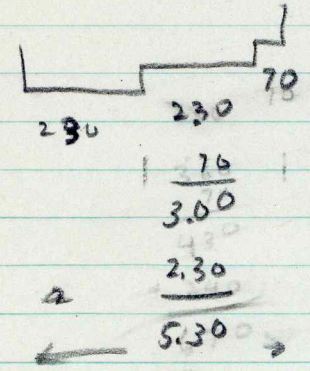 70
230
230
70
3.00
2.30
5.30